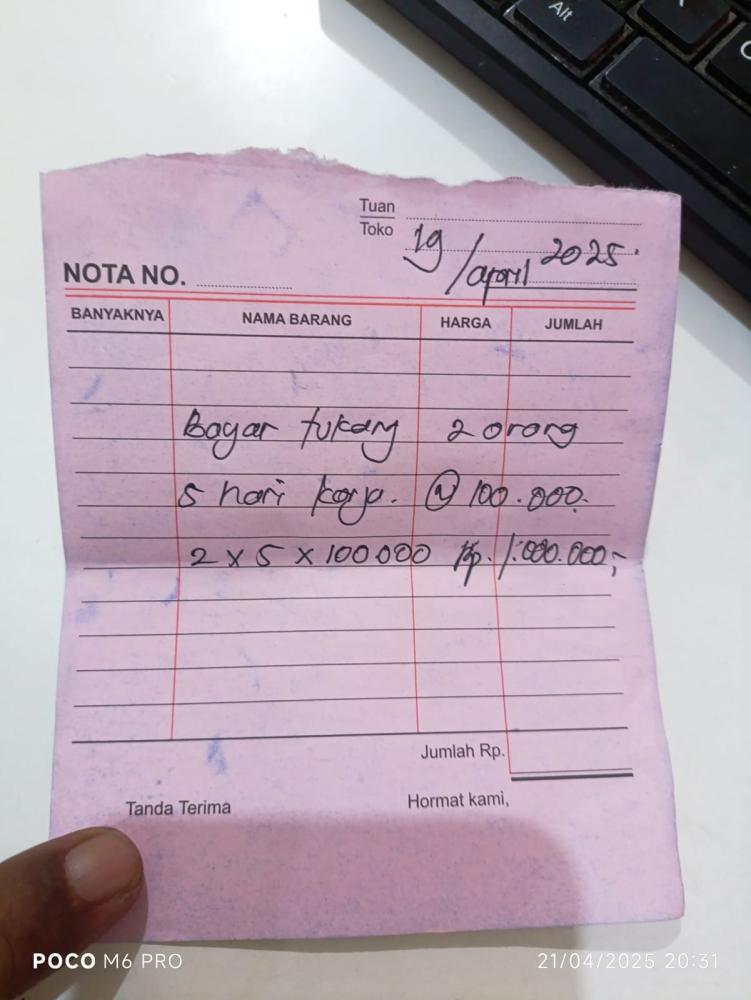 Alt
Tuan
Toko
19/april 2025.
NOTA NO.
BANYAKNYA NAMA BARANG HARGA JUMLAH
Bayar tukang 2 orang
5 hari kerja. @ 100.000.
2 x 5 x 100.000 Rp. 1.000.000,-
Jumlah Rp.
Tanda Terima Hormat kami,
POCO M6 PRO 21/04/2025 20:31